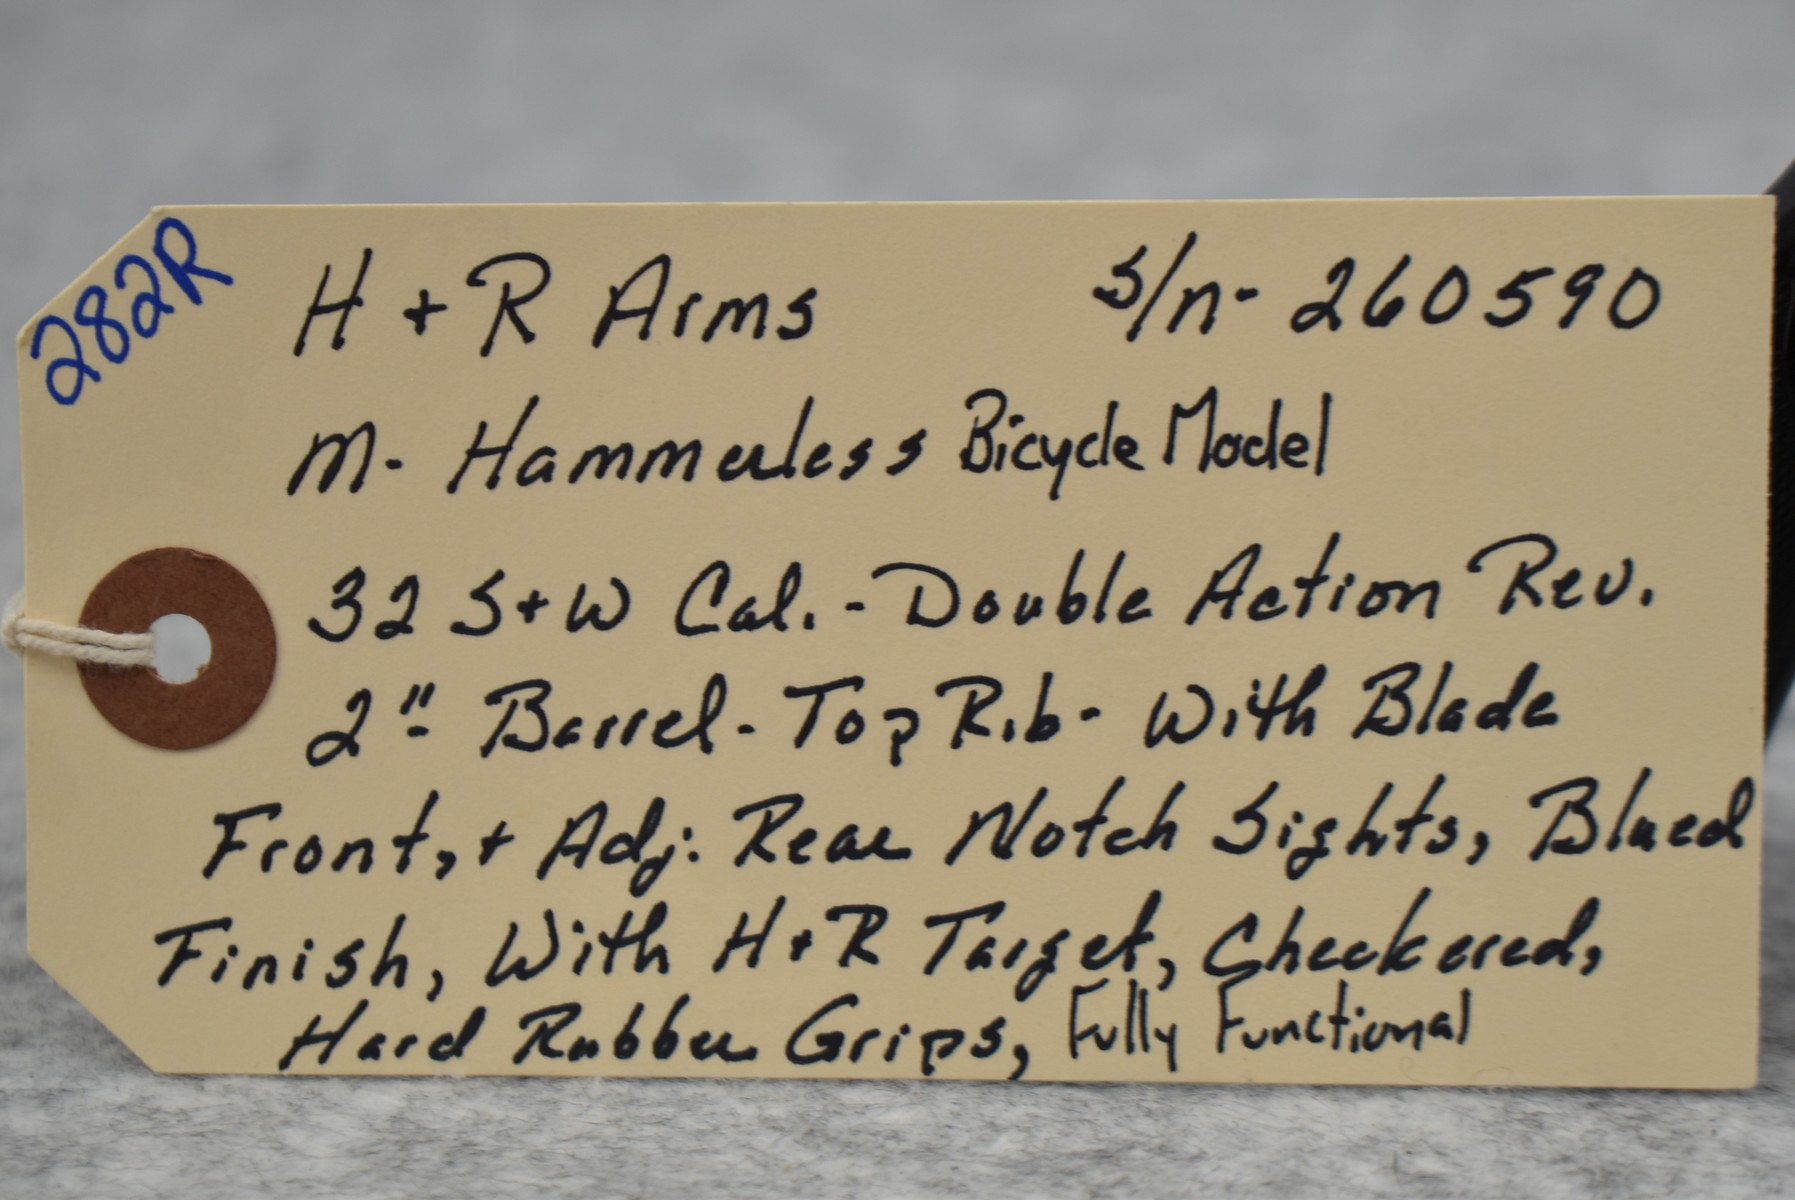 282R
H + R Arms s/n- 260590
M- Hammerless Bicycle Model
32 S+W Cal. - Double Action Rev.
2" Barrel - Top Rib - With Blade
Front, + Adj. Rear Notch Sights, Blued
Finish, With H+R Target, Checkered,
Hard Rubber Grips, Fully Functional